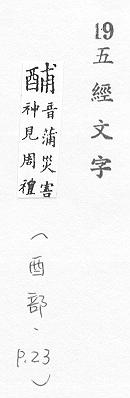 19五經文字
酺音蒲災害
神見周禮
(酉部、p.23)